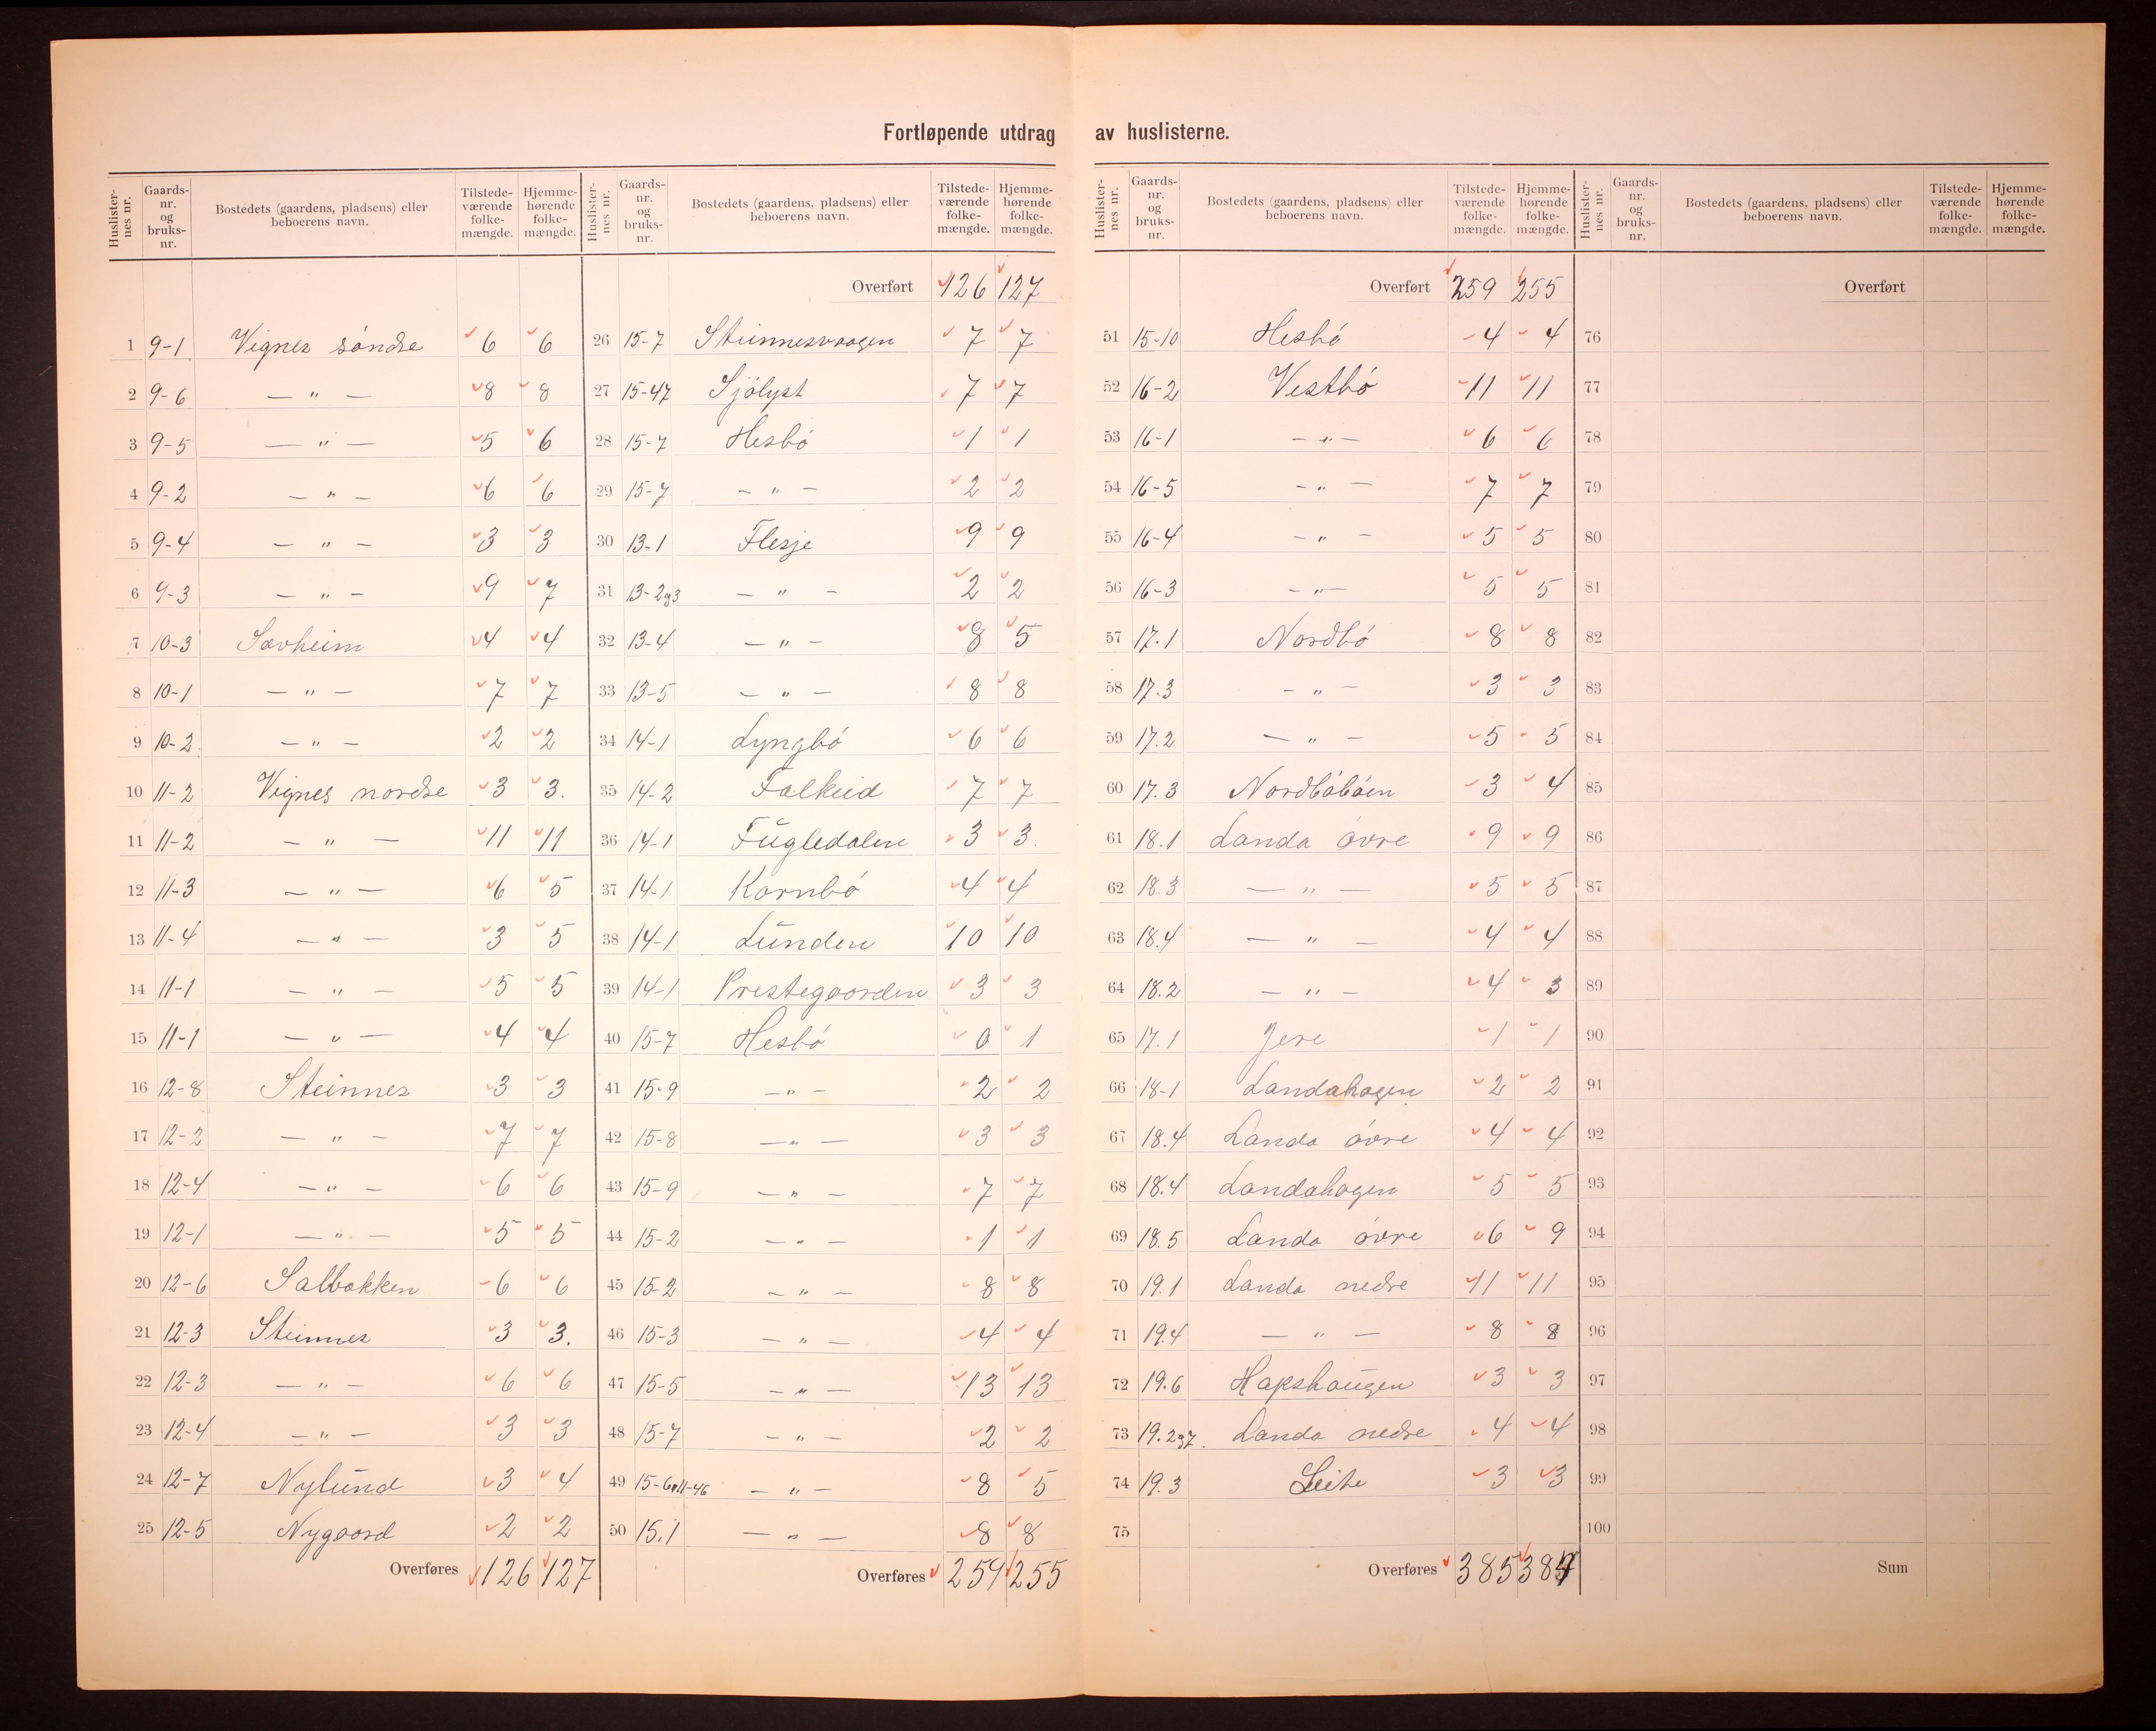 Fortløpende utdrag av huslisterne.
Huslisternes nr. Gaards-nr. og bruks-nr. Bostedets (gaardens, pladsens) eller beboerens navn. Tilstedeværende folkemængde. Hjemmehørende folkemængde.
1 9-1 Vignes søndre 6 6
2 9-6 — " — 8 8
3 9-5 — " — 5 6
4 9-2 — " — 6 6
5 9-4 — " — 3 3
6 9-3 — " — 9 7
7 10-3 Sævheim 4 4
8 10-1 — " — 7 7
9 10-2 — " — 2 2
10 11-2 Vignes nordre 3 3.
11 11-2 — " — 11 11
12 11-3 — " — 6 5
13 11-4 — " — 3 5
14 11-1 — " — 5 5
15 11-1 — " — 4 4
16 12-8 Steinnes 3 3
17 12-2 — " — 7 7
18 12-4 — " — 6 6
19 12-1 — " — 5 5
20 12-6 Salbakken 6 6
21 12-3 Steinnes 3 3.
22 12-3 — " — 6 6
23 12-4 — " — 3 3
24 12-7 Nylund 3 4
25 12-5 Nygaard 2 2
Overføres 126 127
Huslisternes nr. Gaards-nr. og bruks-nr. Bostedets (gaardens, pladsens) eller beboerens navn. Tilstedeværende folkemængde. Hjemmehørende folkemængde.
Overført 126 127
26 15-7 Steinnesvaagen 7 7
27 15-47 Sjølyst 7 7
28 15-7 Hesbø 1 1
29 15-7 — " — 2 2
30 13-1 Flesje 9 9
31 13-2g3 — " — 2 2
32 13-4 — " — 8 5
33 13-5 — " — 8 8
34 14-1 Lyngbø 6 6
35 14-2 Falkeid 7 7
36 14-1 Fugledalen 3 3.
37 14-1 Kornbø 4 4
38 14-1 Lunden 10 10
39 14-1 Prestegaarden 3 3
40 15-7 Hesbø 0 1
41 15-9 — " — 2 2
42 15-8 — " — 3 3
43 15-9 — " — 7 7
44 15-2 — " — 1 1
45 15-2 — " — 8 8
46 15-3 — " — 4 4
47 15-5 — " — 13 13
48 15-7 — " — 2 2
49 — " — 8 5
50 15.1 — " — 8 8
Overføres 259 255
Huslisternes nr. Gaards-nr. og bruks-nr. Bostedets (gaardens, pladsens) eller beboerens navn. Tilstedeværende folkemængde. Hjemmehørende folkemængde.
Overført 259 255
51 15-10 Hesbø 4 4
52 16-2 Vestbø 11 11
53 16-1 — " — 6 6
54 16-5 — " — 7 7
55 16-4 — " — 5 5
56 16-3 — " — 5 5
57 17.1 Nordbø 8 8
58 17.3 — " — 3 3
59 17.2 — " — 5 5
60 17.3 Nordbøbøen 3 4
61 18.1 Landa øvre 9 9
62 18.3 — " — 5 5
63 18.4 — " — 4 4
64 18.2 — " — 4 3
65 17.1 Jere 1 1
66 18-1 Landahagen 2 2
67 18.4 Landa øvre 4 4
68 18.4 Landahagen 5 5
69 18.5 Landa øvre 6 9
70 19.1 Landa nedre 11 11
71 19.4 — " — 8 8
72 19.6 Hapshaugen 3 3
73 19.2g7. Landa nedre 4 4
74 19.3 Leite 3 3
75
Overføres 385
Huslisternes nr. Gaards-nr. og bruks-nr. Bostedets (gaardens, pladsens) eller beboerens navn. Tilstedeværende folkemængde. Hjemmehørende folkemængde.
Overført
76
77
78
79
80
81
82
83
84
85
86
87
88
89
90
91
92
93
94
95
96
97
98
99
100
Sum